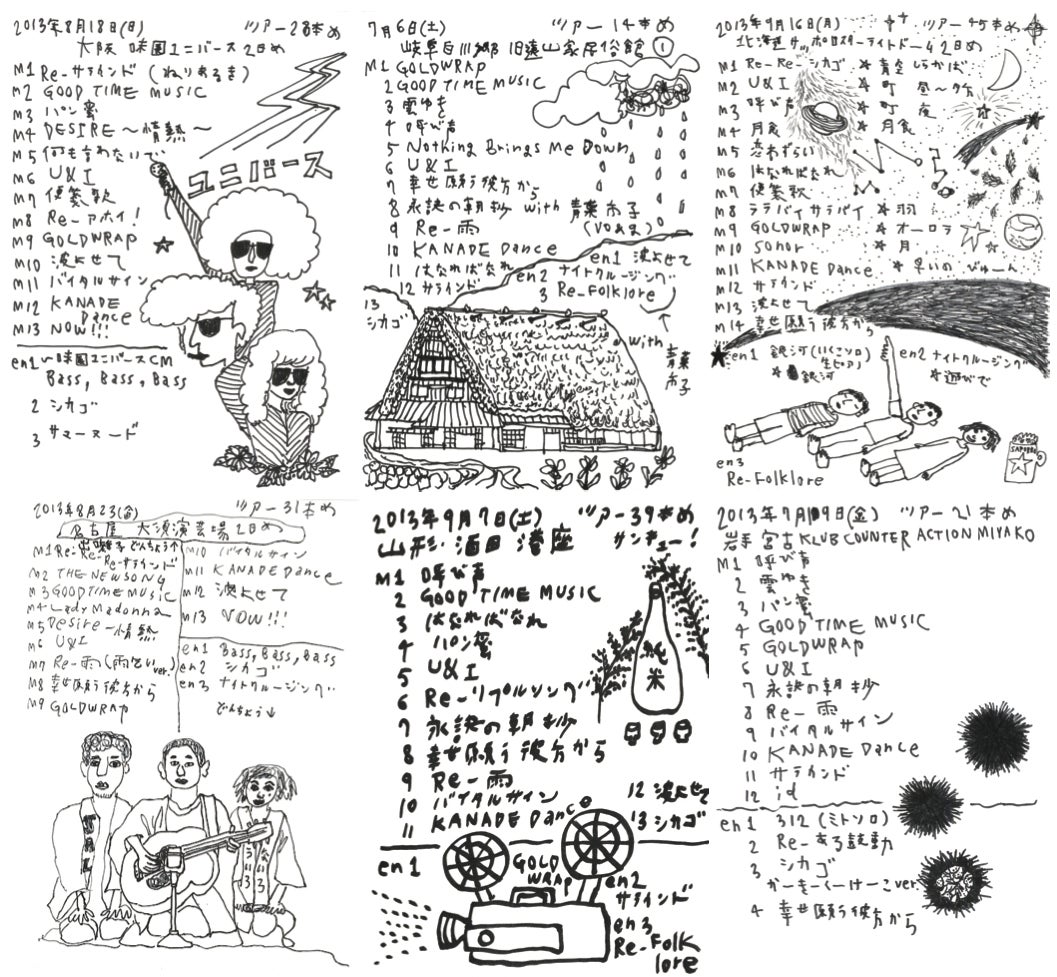 2013年8月18日(日) ツアー28本め
大阪 味園ユニバース 2日め
M1 Re-サラインド (ねりあるき)
M2 GOOD TIME MUSIC
M3 パン蜜
M4 DESIRE 〜情熱〜
M5 何も言わないで
M6 U&I
M7 便箋歌
M8 Re-アホイ!
M9 GOLDWRAP
M10 波よせて
M11 バイタルサイン
M12 KANADE Dance
M13 NOW!!!
ユニバース
en1 〜味園ユニバースCM
Bass, Bass, Bass
2 シカゴ
3 サマーヌード
7月6日(土) ツアー14本め
岐阜白川郷 旧遠山家民俗館 ①
M1 GOLDWRAP
2 GOOD TIME MUSIC
3 雲ゆき
4 呼び声
5 Nothing Brings Me Down
6 U&I
7 幸せ願う彼方から
8 永訣の朝抄 with 青葉市子
9 Re-雨 (Voあま)
10 KANADE Dance
11 はなればなれ
12 サラインド
13 シカゴ
en1 波よせて
en2 ナイトクルージング
3 Re-Folklore
with 青葉市子
2013年9月16日(月) ツアー45本め
北海道 サッポロスターライトドーム2日め
M1 Re-Re-シカゴ ☆青空 しらかば
M2 U&I ☆町 昼〜夕方
M3 呼び声 ☆町 夜
M4 月食 ☆月食
M5 恋わずらい
M6 はなればなれ
M7 便箋歌
M8 ララバイサラバイ ☆羽
M9 GOLDWRAP ☆オーロラ
M10 sonor ☆月
M11 KANADE Dance ☆早いの びゅーん
M12 サラインド
M13 波よせて
M14 幸せ願う彼方から
en1 銀河
☆銀河
en2 ナイトクルージング
☆遊びで
en3
Re-Folklore
SAPPORO
2013年8月23日(金) ツアー31本め
名古屋 大須演芸場 2日め
M1 Re-Re-Re-サラインド
出囃子 どんちょう↑
M2 THE NEWSONG
M3 GOOD TIME MUSIC
M4 Lady Madonna
M5 Desire 〜情熱
M6 U&I
M7 Re-雨(雨乞いver.)
M8 幸せ願う彼方から
M9 GOLDWRAP
M10 バイタルサイン
M11 KANADE Dance
M12 波よせて
M13 NOW!!!
en1 Bass, Bass, Bass
en2 シカゴ
en3 ナイトクルージング
どんちょう↓
2013年9月7日(土) ツアー39本め
山形・酒田 港座 サンキュー!
M1 呼び声
2 GOOD TIME MUSIC
3 はなればなれ
4 パン蜜
5 U&I
6 Re-リプルソング
7 永訣の朝抄
8 幸せ願う彼方から
9 Re-雨
10 バイタルサイン
11 KANADE Dance
12 波よせて
13 シカゴ
純米
en1 GOLD WRAP
en2 サラインド
en3 Re-Folklore
2013年7月19日(金) ツアー21本め
岩手 宮古 KLUB COUNTER ACTION MIYAKO
M1 呼び声
2 雲ゆき
3 パン蜜
4 GOOD TIME MUSIC
5 GOLDWRAP
6 U&I
7 永訣の朝抄
8 Re-雨
9 バイタルサイン
10 KANADE Dance
11 サラインド
12 id
en1 312 (ミトソロ)
2 Re-ある鼓動
3 シカゴ
かーもーくーけーこver
4 幸せ願う彼方から